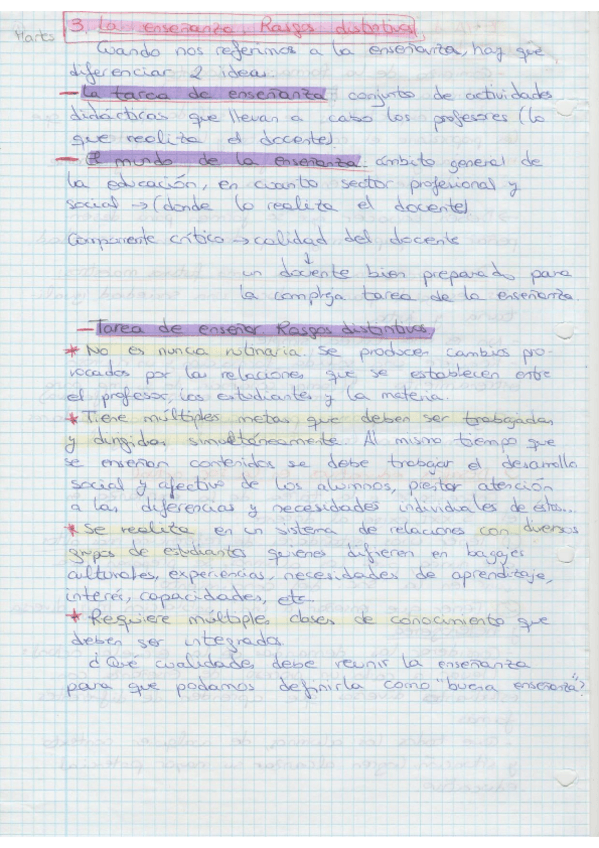 Martes
3. La enseñanza. Rasgos distintivos
Cuando nos referimos a la enseñanza, hay que
diferenciar 2 ideas:
- La tarea de enseñanza: conjunto de actividades
didácticas que llevan a cabo los profesores (lo
que realiza el docente).
- El mundo de la enseñanza: ámbito general de
la educación, en cuanto sector profesional y
social → (donde lo realiza el docente)
Componente crítico → calidad del docente
↓
un docente bien preparado para
la compleja tarea de la enseñanza.
- Tarea de enseñar Rasgos distintivos
* No es nunca rutinaria. Se producen cambios pro-
vocados por las relaciones que se establecen entre
el profesor, los estudiantes y la materia.
* Tiene múltiples metas, que deben ser trabajadas
y dirigidas simultáneamente. Al mismo tiempo que
se enseñan contenidos se debe trabajar el desarrollo
social y afectivo de los alumnos, prestar atención
a las diferencias y necesidades individuales de estos...
* Se realiza en un sistema de relaciones con diversos
grupos de estudiantes quienes difieren en bagajes
culturales, experiencias, necesidades de aprendizaje,
interés, capacidades, etc...
* Requiere múltiples clases de conocimiento que
deben ser integrados.
¿Qué cualidades debe reunir la enseñanza
para que podamos definirla como "buena enseñanza"?